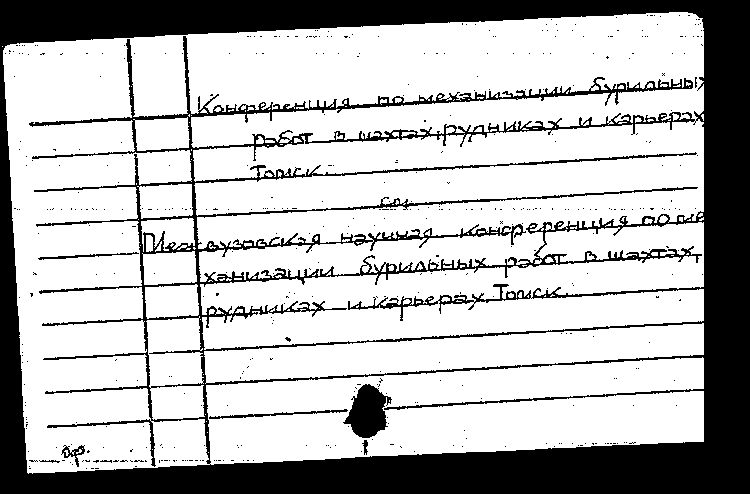 Конференция по механизации бурильных
работ в шахтах, рудниках и карьерах,
Томск.
см.
Межвузовская научная конференция по ме
ханизации бурильных работ в шахтах,
рудниках и карьерах. Томск.